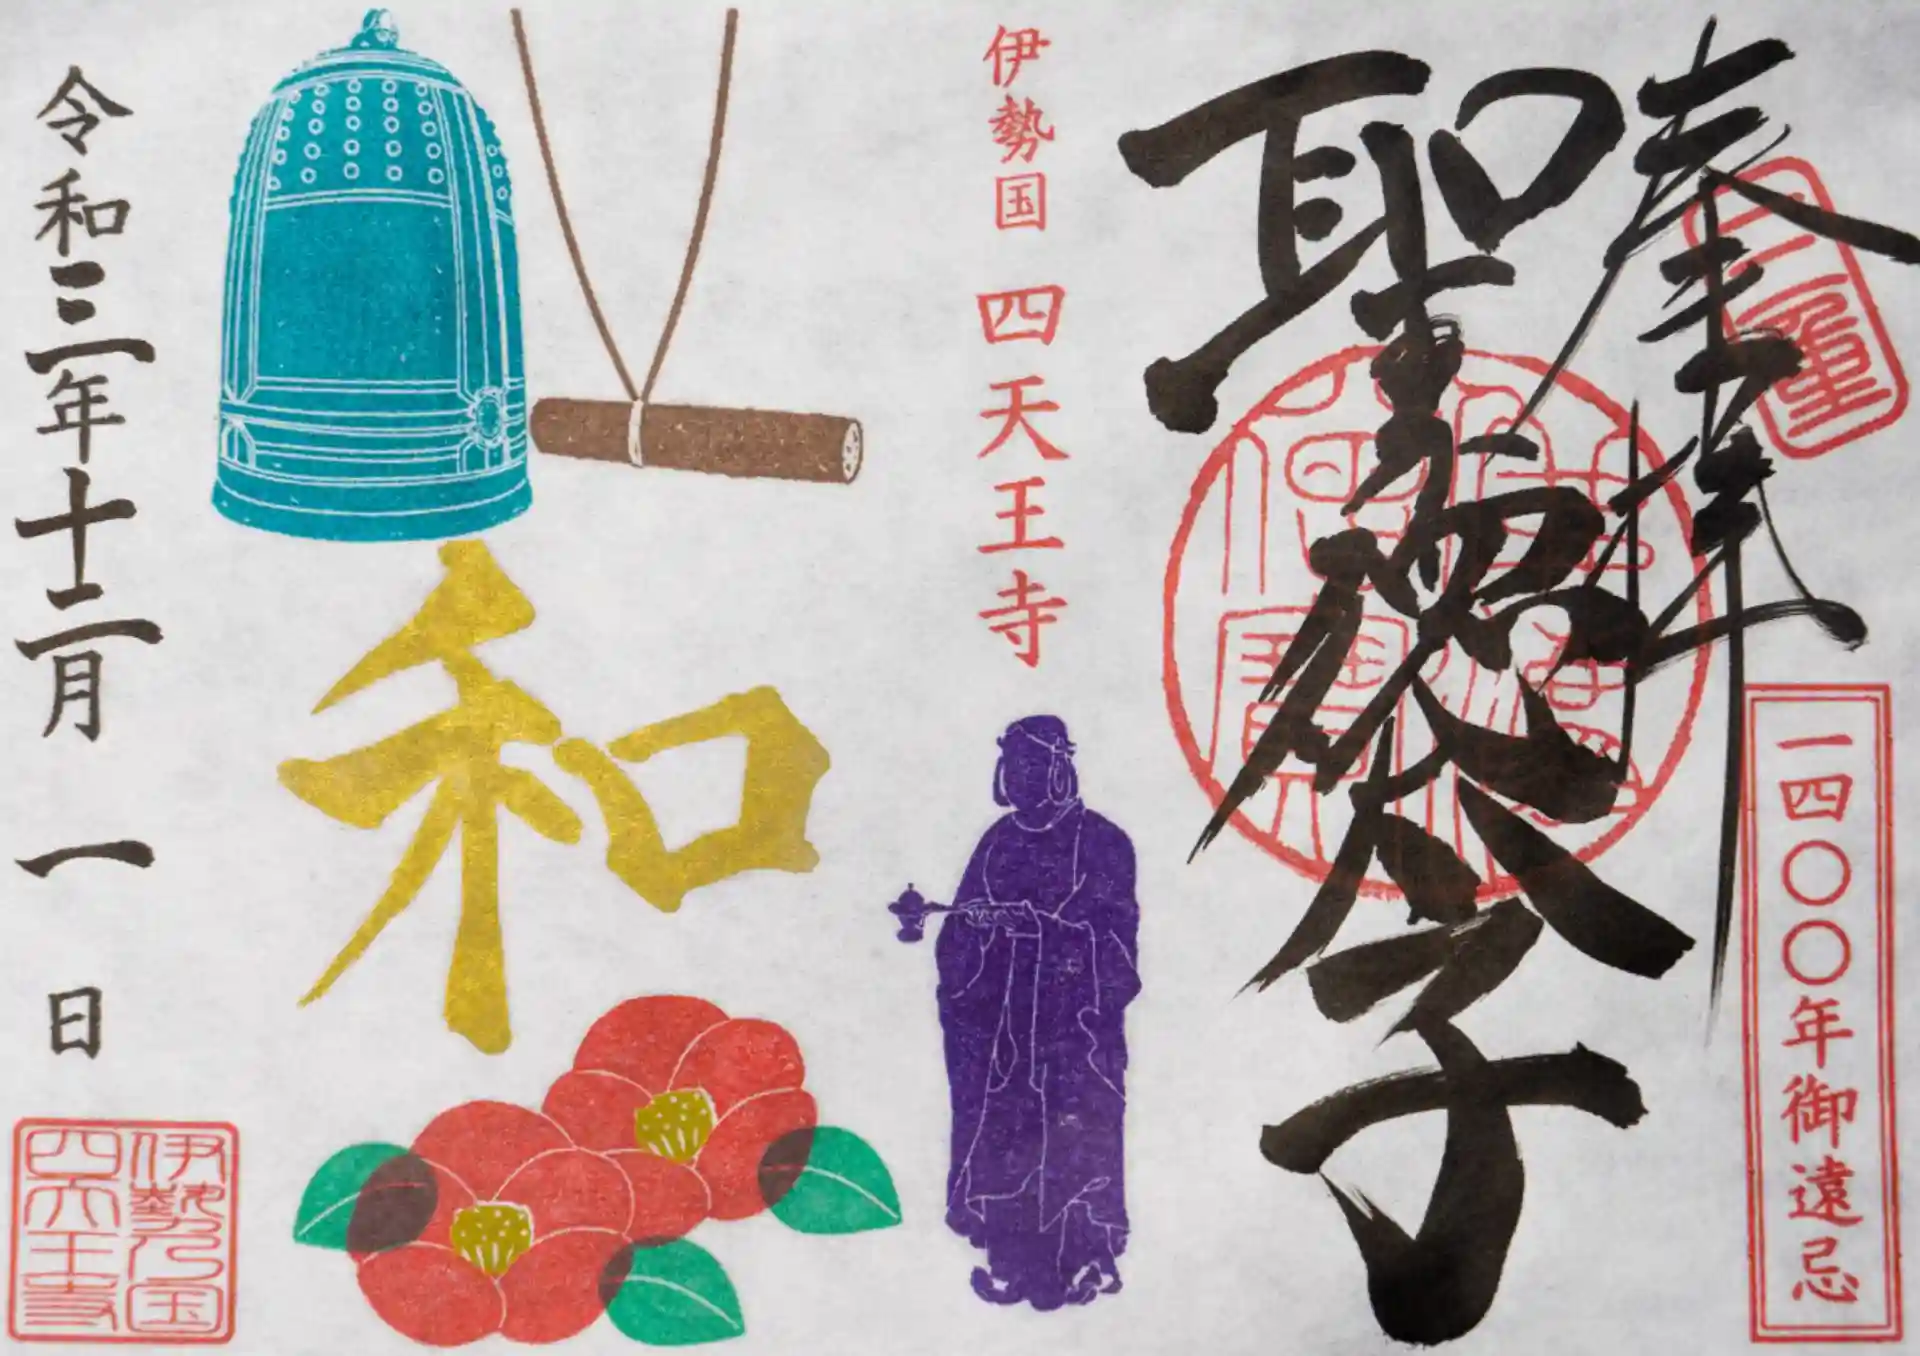 奉拝
三重
聖徳太子
一四〇〇年御遠忌
伊勢国 四天王寺
和
令和三年十二月一日
伊勢国
四天王寺